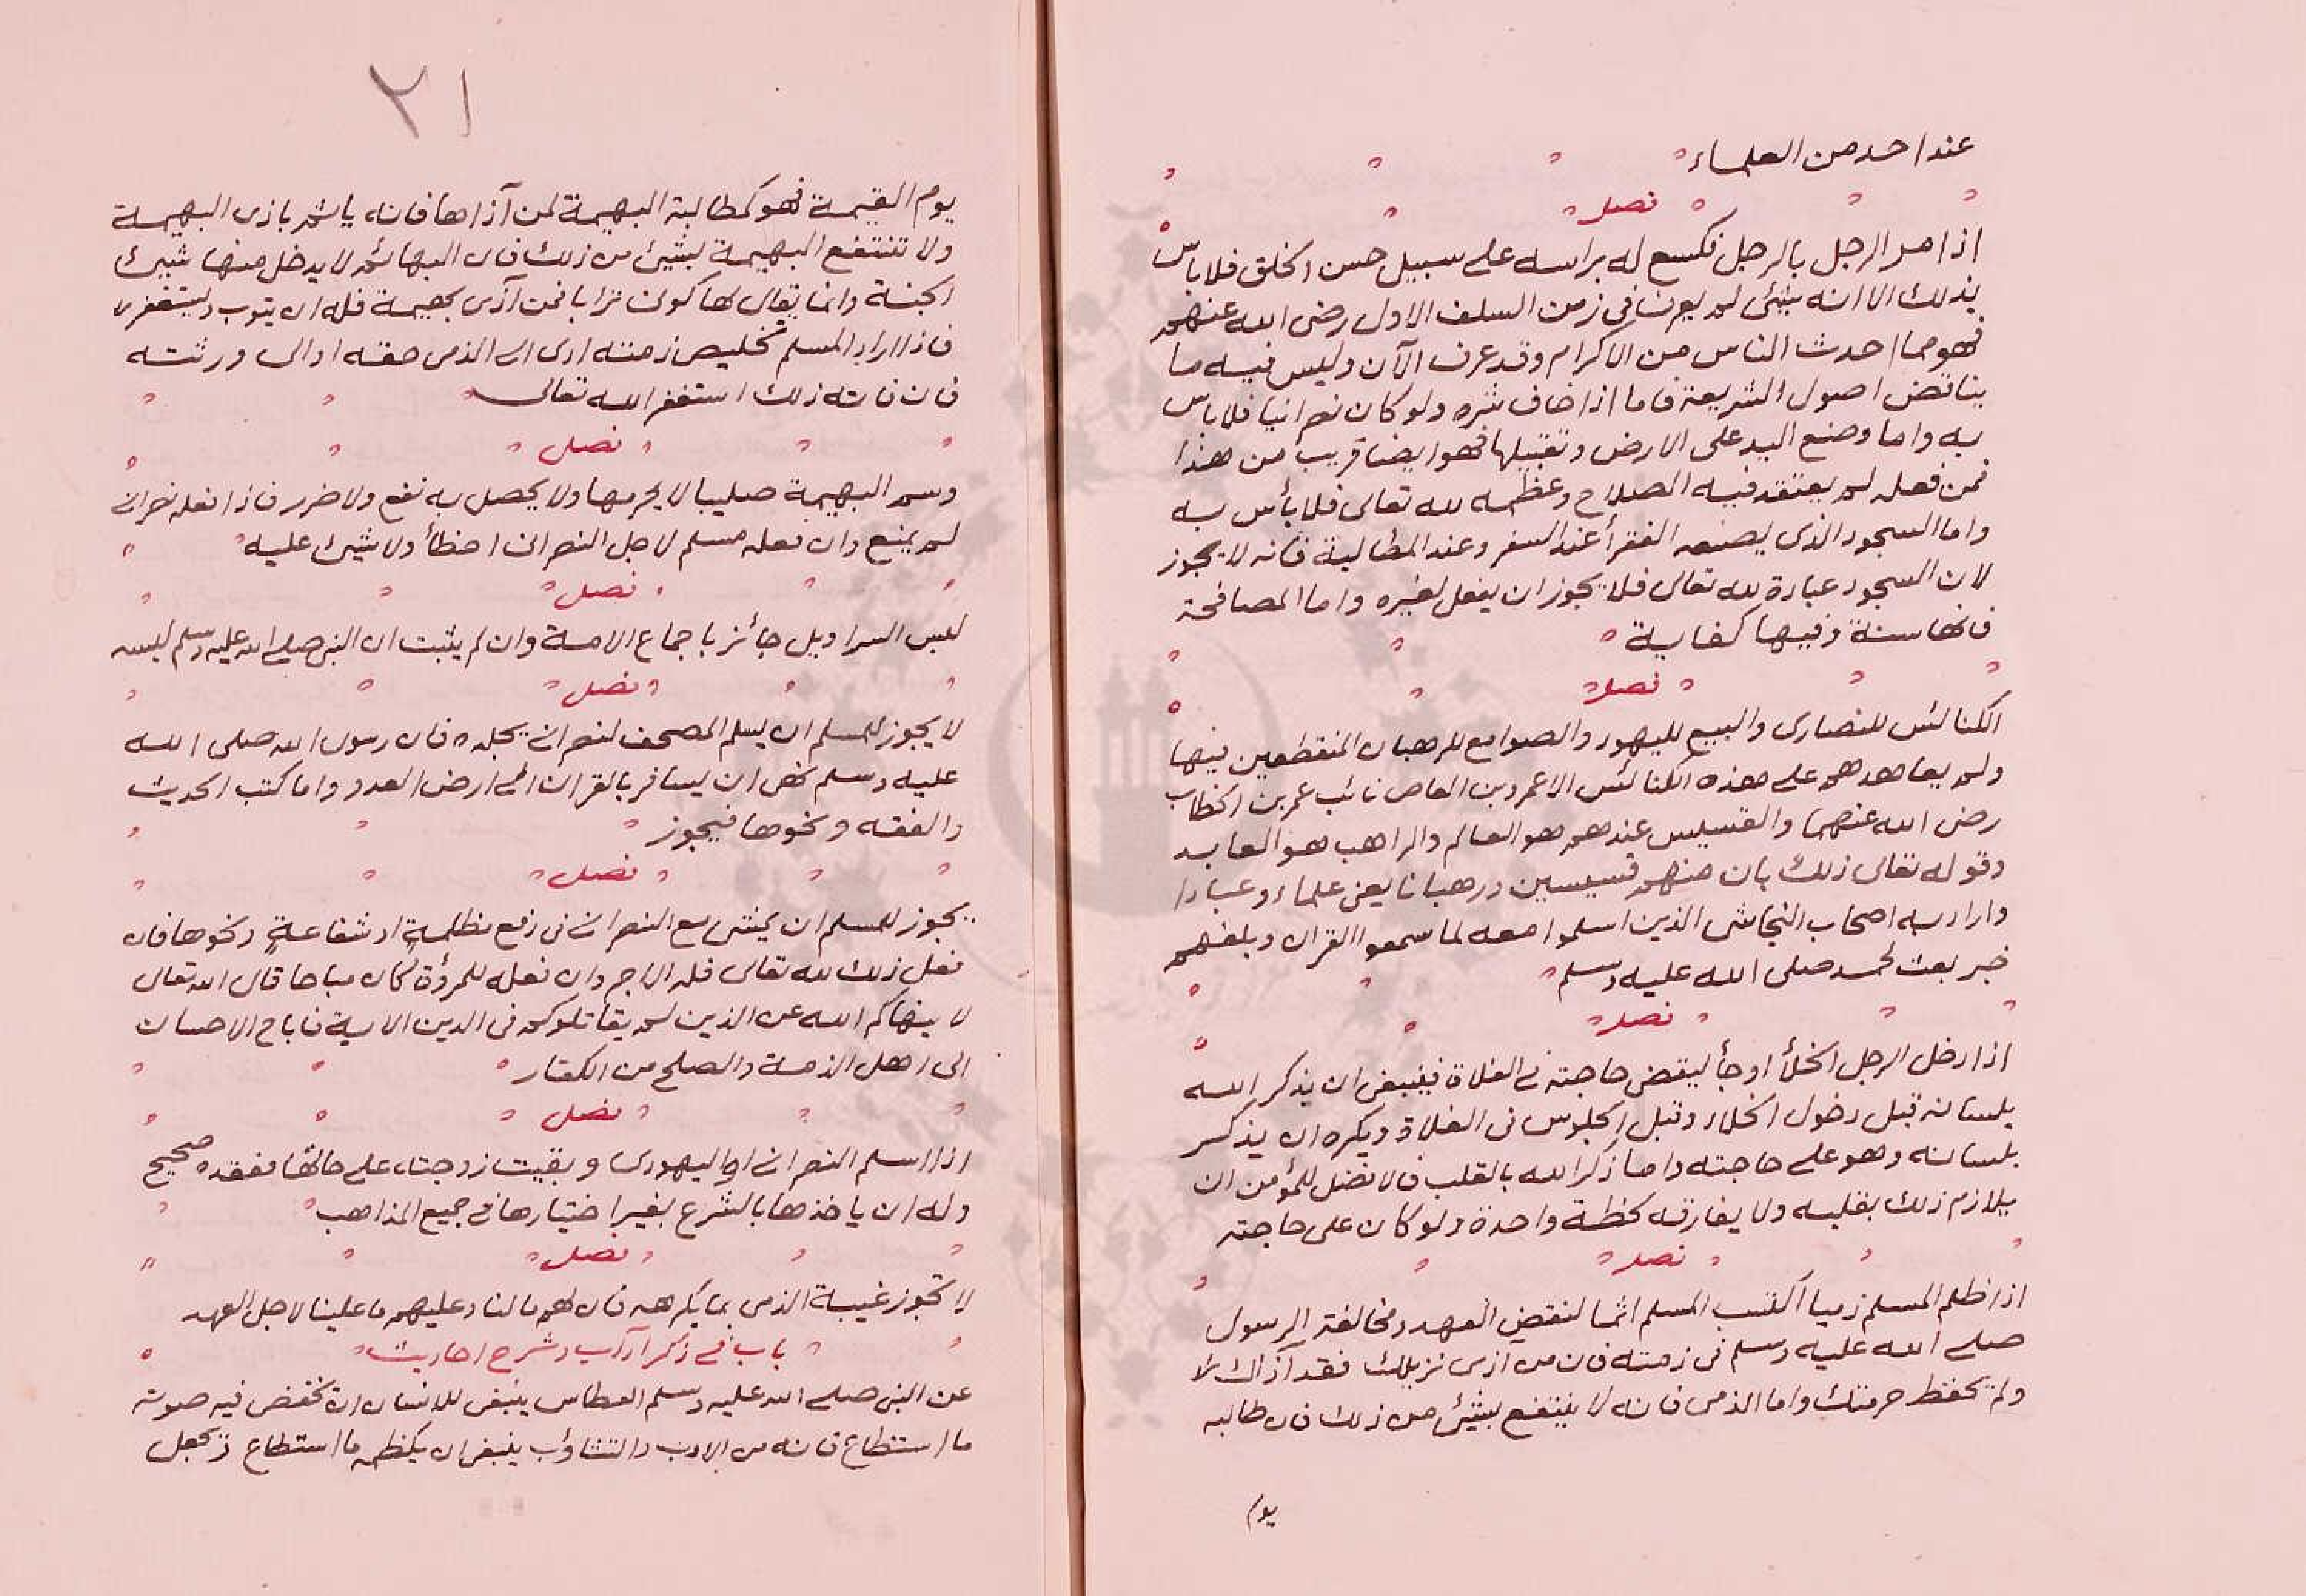 عند احد من العلماء
فصل
اذا مر الرجل بالرجل فكسع له براسه على سبيل حسن الخلق فلا باس
بذلك الا انه شئ لم يعرف في زمن السلف الاول رضى الله عنهم
فهو مما احدث الناس من الاكرام وقد عرف الآن وليس فيه ما
يناقض اصول الشريعة فاما اذا خاف شره ولو كان نصرانيا فلا باس
به واما وضع اليد على الارض وتقبيلها فهو ايضا قريب من هذا
فمن فعله لم يعتقد فيه الصلاح وعظمه لله تعالى فلا بأس به
واما السجود الذى يصنعه الفقرأ عند السفر وعند المطالبة فانه لا يجوز
لان السجود عبادة لله تعالى فلا يجوز ان يفعل لغيره واما المصافحة
فانها سنة وفيها كفاية
فصل
الكنائس للنصارى والبيع لليهود والصوامع للرهبان المنقطعين فيها
ولم يعاهدهم على هذه الكنائس الا عمرو بن العاص نائب عمر بن الخطاب
رضى الله عنهما والقسيس عندهم هو العالم والراهب هو العابد
وقوله تعالى ذلك بان منهم قسيسين ورهبانا يعنى علماء وعبادا
واراد به اصحاب النجاشى الذين اسلموا معه لما سمعوا القران وبلغهم
خبر بعث محمد صلى الله عليه وسلم
فصل
اذا دخل الرجل الخلأ او جأ ليقضى حاجته فى الفلاة فينبغى ان يذكر الله
بلسانه قبل دخول الخلاء وقبل الجلوس فى الفلاة ويكره ان يذكر
بلسانه وهو على حاجته واما ذكر الله بالقلب فالافضل للمؤمن ان
يلازم ذلك بقلبه ولا يفارقه لحظة واحدة ولو كان على حاجته
فصل
اذا ظلم المسلم ذميا اكتسب المسلم اثما لنقض العهد ومخالفة الرسول
صلى الله عليه وسلم فى ذمته فان من آذى نزيلك فقد آذاك
ولم يحفظ حرمتك واما الذمى فانه لا ينتفع بشئ من ذلك فان طالبه
يوم
٢١
يوم القيمة فهو كمطالبة البهيمة لمن آذاها فانه ياثم باذى البهيمة
ولا تنتفع البهيمة بشئ من ذلك فان البهائم لا يدخل منها شئ
الجنة وانما يقال لها كونى ترابا فمن آذى بهيمة فله ان يتوب ويستغفر
فاذا اراد المسلم تخليص ذمته ادى الى الذمى حقه او الى ورثته
فان فاته ذلك استغفر الله تعالى
فصل
وسم البهيمة صليبا لا يحرمها ولا يحصل به نفع ولا ضرر فاذا فعله نصرانى
لم يمنع وان فعله مسلم لاجل النصرانى اخطأ ولا شئ عليه
فصل
لبس السراويل جائز باجماع الامة وان لم يثبت ان النبى صلى الله عليه وسلم لبسه
فصل
لا يجوز للمسلم ان يسلم المصحف لنصرانى يجلده فان رسول الله صلى الله
عليه وسلم نهى ان يسافر بالقران الى ارض العدو واما كتب الحديث
والفقه ونحوها فيجوز
فصل
يجوز للمسلم ان يمشى مع النصرانى فى رفع مظلمة او شفاعة ونحوها فان
فعل ذلك لله تعالى فله الاجر وان فعله للمروءة كان مباحا قال الله تعالى
لا ينهاكم الله عن الذين لم يقاتلوكم فى الدين الاية فاباح الاحسان
الى اهل الذمة والصلح من الكفار
فصل
اذا اسلم النصرانى او اليهودى وبقيت زوجته على حالها فعقده صحيح
وله ان ياخذها بالشرع بغير اختيارها فى جميع المذاهب
فصل
لا تجوز غيبة الذمى بما يكرهه فان لهم ما لنا وعليهم ما علينا لاجل العهد
باب فى ذكر آداب وشرح احاديث
عن النبى صلى الله عليه وسلم العطاس ينبغى للانسان ان يخفض فيه صوته
ما استطاع فانه من الادب والتثاؤب ينبغى ان يكظمه ما استطاع ويجعل